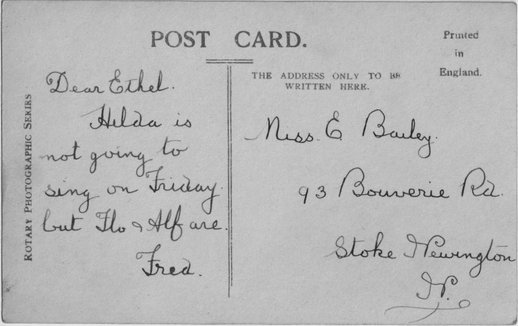 POST CARD.
Printed
in
England.
THE ADDRESS ONLY TO BE
WRITTEN HERE.
ROTARY PHOTOGRAPHIC SERIES
Dear Ethel.
Hilda is
not going to
sing on Friday
but Flo & Alf are.
Fred.
Miss E Bailey.
93 Bouverie Rd.
Stoke Newington
N.